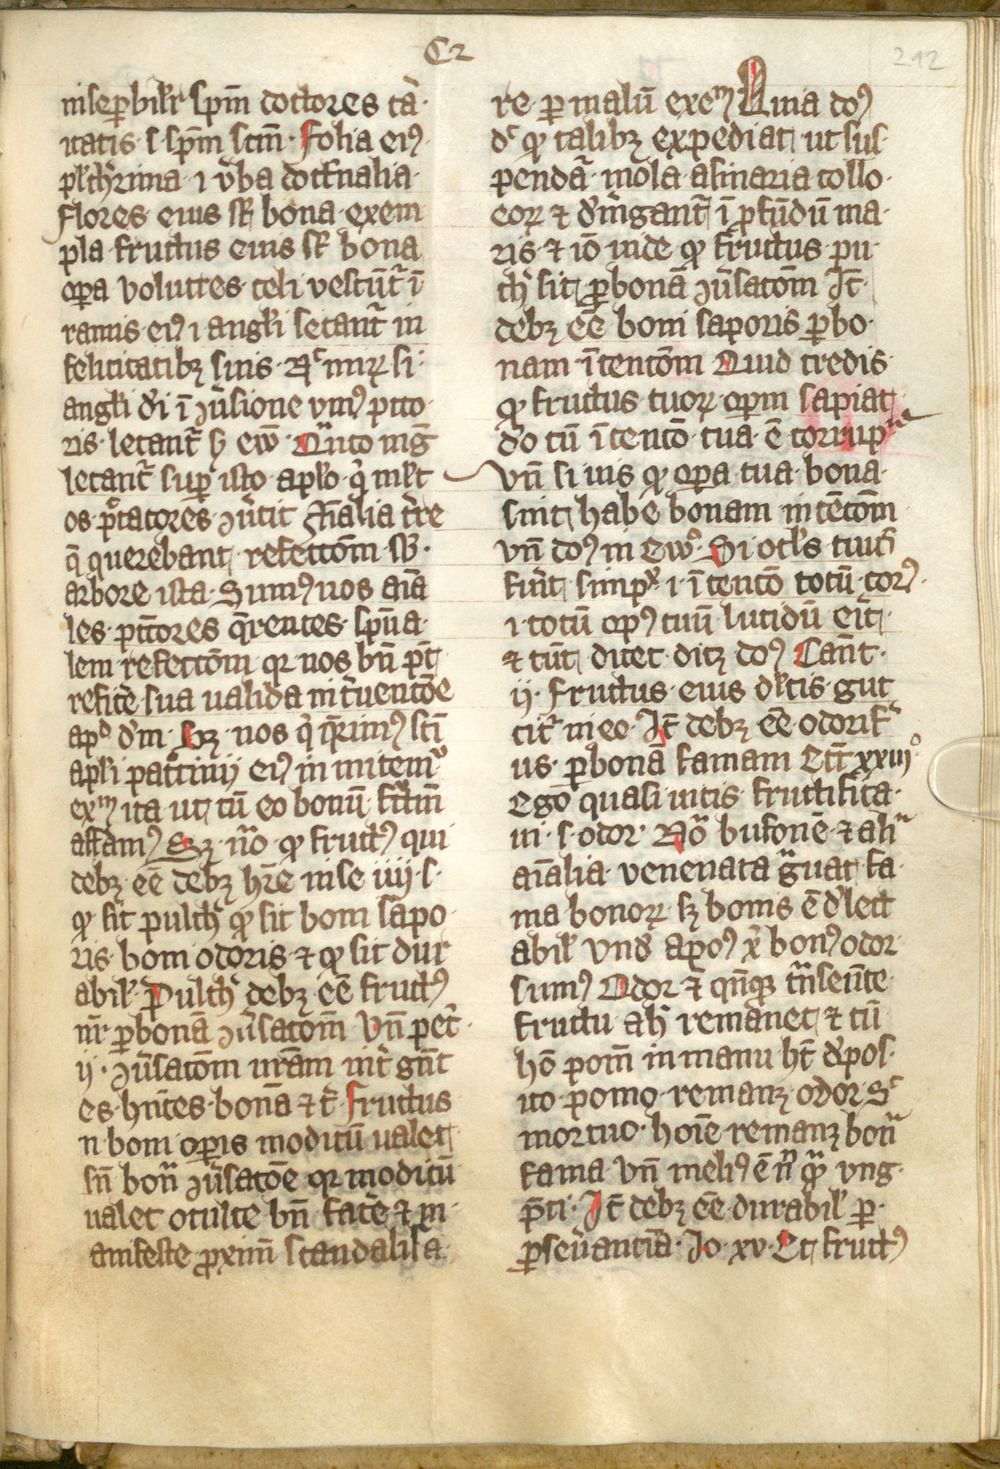 C2
212
inseꝑabilr̄ spm̄ doctores ca᷑
itatis · s · spm̄ scm̄ · Folia eiꝰ
plch᷑rima · i v᷑ba doct᷑nalia ·
flores · eius st̄ bona · exem
pla · fructus eius st̄ bona
oꝑa volucres · celi vescūt᷑ ī
ramis · eiꝰ · i angli letant᷑ in
felicitatibꝫ suis ·
angli di ī ꝯu᷑sione vniꝰ pcco
ris · letant᷑
letant᷑ suꝑ isto aplo · q̇ mlt
os · p̄catores · ꝯu᷑tit
q̄ querebant refectōm sb̄ ·
arbore ista · Sumꝰ nos aīa
les · pcc̄ores q̄rentes · spūa
lem refectōm qr nos bn̄ pt̄
refice᷑ sua ualida int᷑uentōe
apᵈ dm̄ · Sꝫ nos q̇ q̄rimꝰ sci᷑
apli patͦciniū eiꝰ in
exᵐ ita ut cū eo bonū f᷑tm̄
affamꝰ Sꝫ nͦo qͦ fructꝰ qui
debꝫ eē debꝫ hr̄e in se iiij · s ·
qͦ sit pulch᷑ qͦ sit boni sapo
ris · boni odoris · ⁊ qͦ sit dur
abil᷑ · Pulch᷑ debꝫ eē fructꝰ
nr̄ ꝑ bonā ꝯu᷑satōm Vn̄ pet᷑ ·
ij · ꝯu᷑satōm ur̄am int᷑ gn̄t
es · hn̄tes · bonā ⁊ c᷑ · Fructus
n̄ boni oꝑis modicū ualet
sn̄ bonᵃ ꝯu᷑satōe qr modicū
ualet oculte bn̄ face᷑ ⁊ m
anifeste ꝓximū scandalisa
re ꝑ malū exeᵐ
dᶜ qͦ talibꝫ expediat ut sus
pendat᷑ · mola asinaria collo ·
eoꝝ ⁊ dim᷑gant᷑ ī ꝓfūdū ma
ris · ⁊ iō uide qͦ fructus pu
ch᷑ sit ꝑ bonā ꝯu᷑satōm It̄
debꝫ eē boni saporis ꝑ bo
nam · ītentōm Quid credis ·
qͦ fructus tuoꝝ oꝑm sapiat
dō cū ītentō · tua · ē corrupᵗᵃ
Vn̄ si uis qͦ oꝑa tua · bona ·
sint habe bonam intētōm
vn̄ doꝰ in Ewᵒ · Si ocls tuus
fu᷑it simpˣ · i · ītentō totū corꝰ ·
i · totū opꝰ tuū lucidū erit
⁊ tūc dicet dicꝫ doꝰ Cant᷑ ·
ij · Fructus · eius dlcis · gut
turi · meo · It̄ debꝫ eē odorif᷑
us · ꝑ bonā famam Ecc̄ xxiiijᵒ
Ego quasi uitis fructifica
ui · s · odor · Nō bufonē ⁊ alia
aīalia · venenata
ma bonoꝝ sꝫ bonis ē dlect
abil᷑ Vnd̄ apoꝰ xp̄i bonꝰ odor
sumꝰ Odor · ⁊ qn̄qꝫ tn̄seūte
fructu · ah᷑ · remanet ⁊ cū
hō pom̄ in manu ht̄ dpos ·
ito · pomo · remanꝫ · odor Sᶜ
mortuo · hoīe · remanꝫ bonᵃ
fama Vn̄ meliꝰ ē n̄ qᵃꝫ vng
p̄ci · It̄ debꝫ eē durabil᷑ ꝑ ·
ꝑseuantiā · Jo · xv · Et fructꝰ